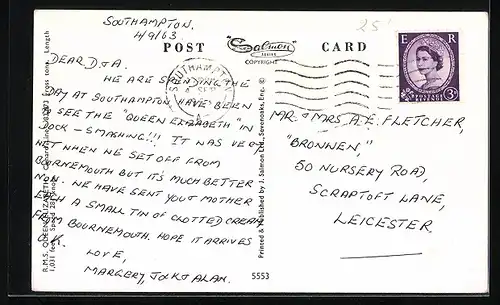 SOUTHAMPTON.
4/9/63
25
POST "Salmon" CARD
SERIES
COPYRIGHT
E R
POSTAGE
3D
SOUTHAMPTON
DEAR D & A.
WE ARE SPENDING THE
DAY AT SOUTHAMPTON, HAVE BEEN
TO SEE THE "QUEEN ELIZABETH" IN
DOCK – SMASHING!!! IT WAS VERY
WET WHEN WE SET OFF FROM
BOURNEMOUTH BUT IT'S MUCH BETTER
NOW. WE HAVE SENT YOU & MOTHER
EACH A SMALL TIN OF CLOTTED CREAM
FROM BOURNEMOUTH. HOPE IT ARRIVES
O.K.
LOVE,
MARGERY, J & K & ALAN.
R.M.S. QUEEN ELIZABETH (Cunard Line) gross tons. Length
1,031 feet. Speed
Printed & Published by J. Salmon Ltd., Sevenoaks, Eng. ©
5553
MR. & MRS. A. E. FLETCHER,
"BRONWEN,"
50 NURSERY ROAD,
SCRAPTOFT LANE,
LEICESTER